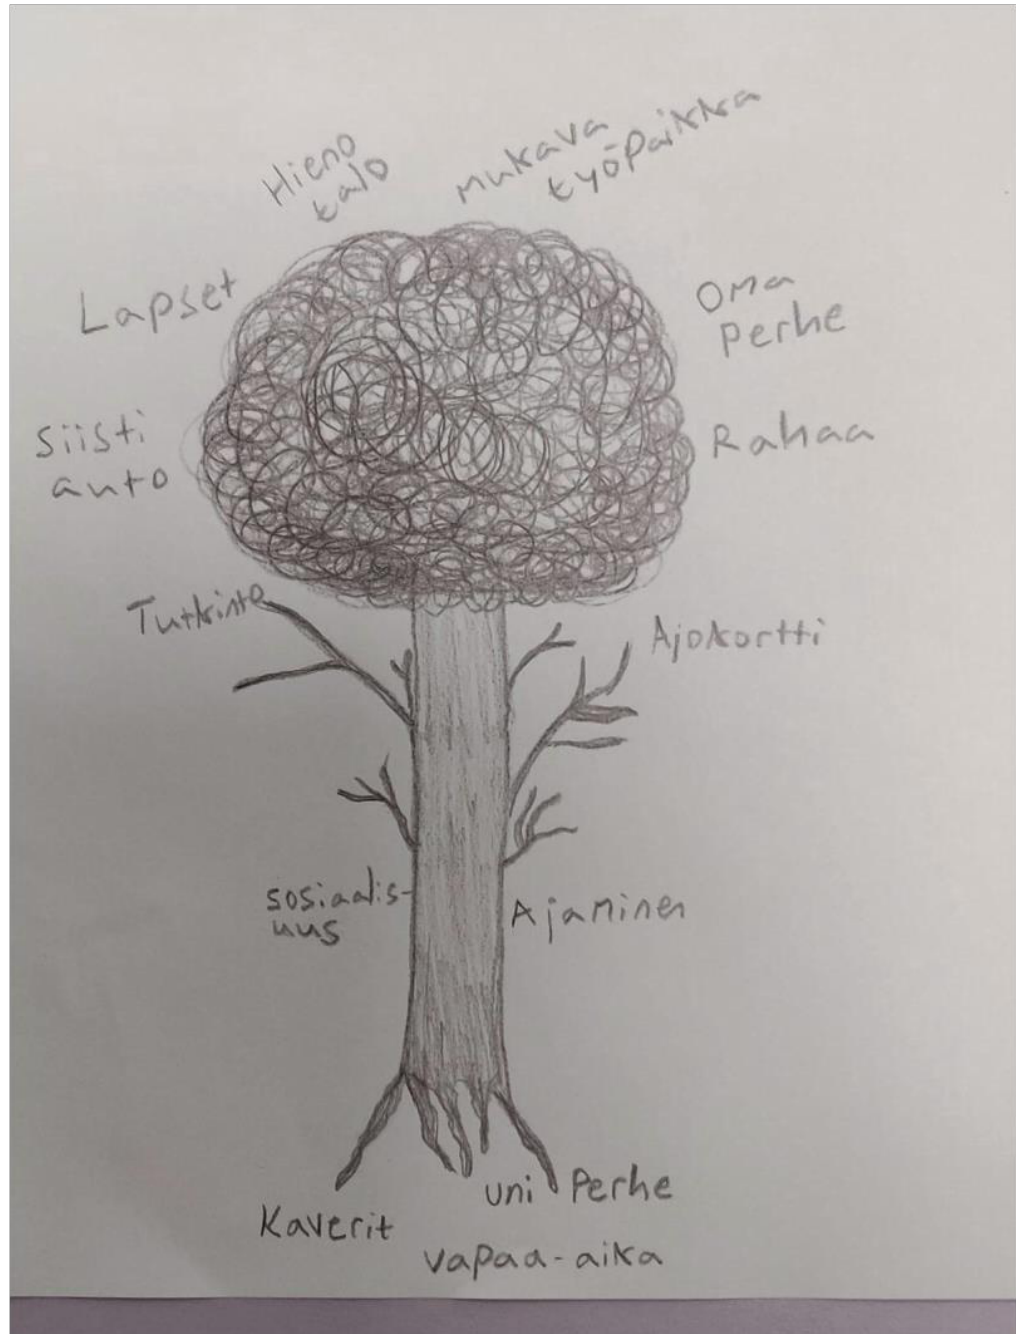 Hieno
talo
mukava
työpaikka
Lapset
Oma
Perhe
siisti
auto
Rahaa
Tutkinto
Ajokortti
sosiaalis-
uus
Ajaminen
uni
Perhe
Kaverit
vapaa-aika